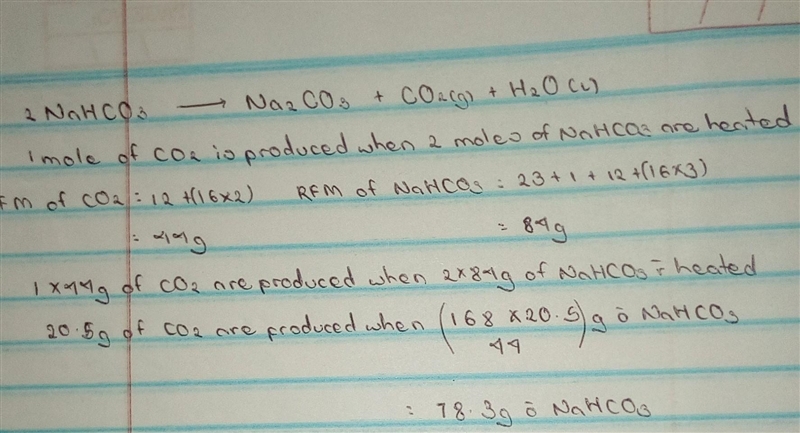 2NaHCO3 → Na2CO3 + CO2(g) + H2O(l)
1 mole of CO2 is produced when 2 moles of NaHCO3 are heated
FM of CO2 = 12+(16x2) RFM of NaHCO3 = 23+1+12+(16x3)
= 44g = 84g
1x44g of CO2 are produced when 2x84g of NaHCO3 = heated
20.5g of CO2 are produced when (168 x 20.5)g o NaHCO3
44
= 78.3g o NaHCO3